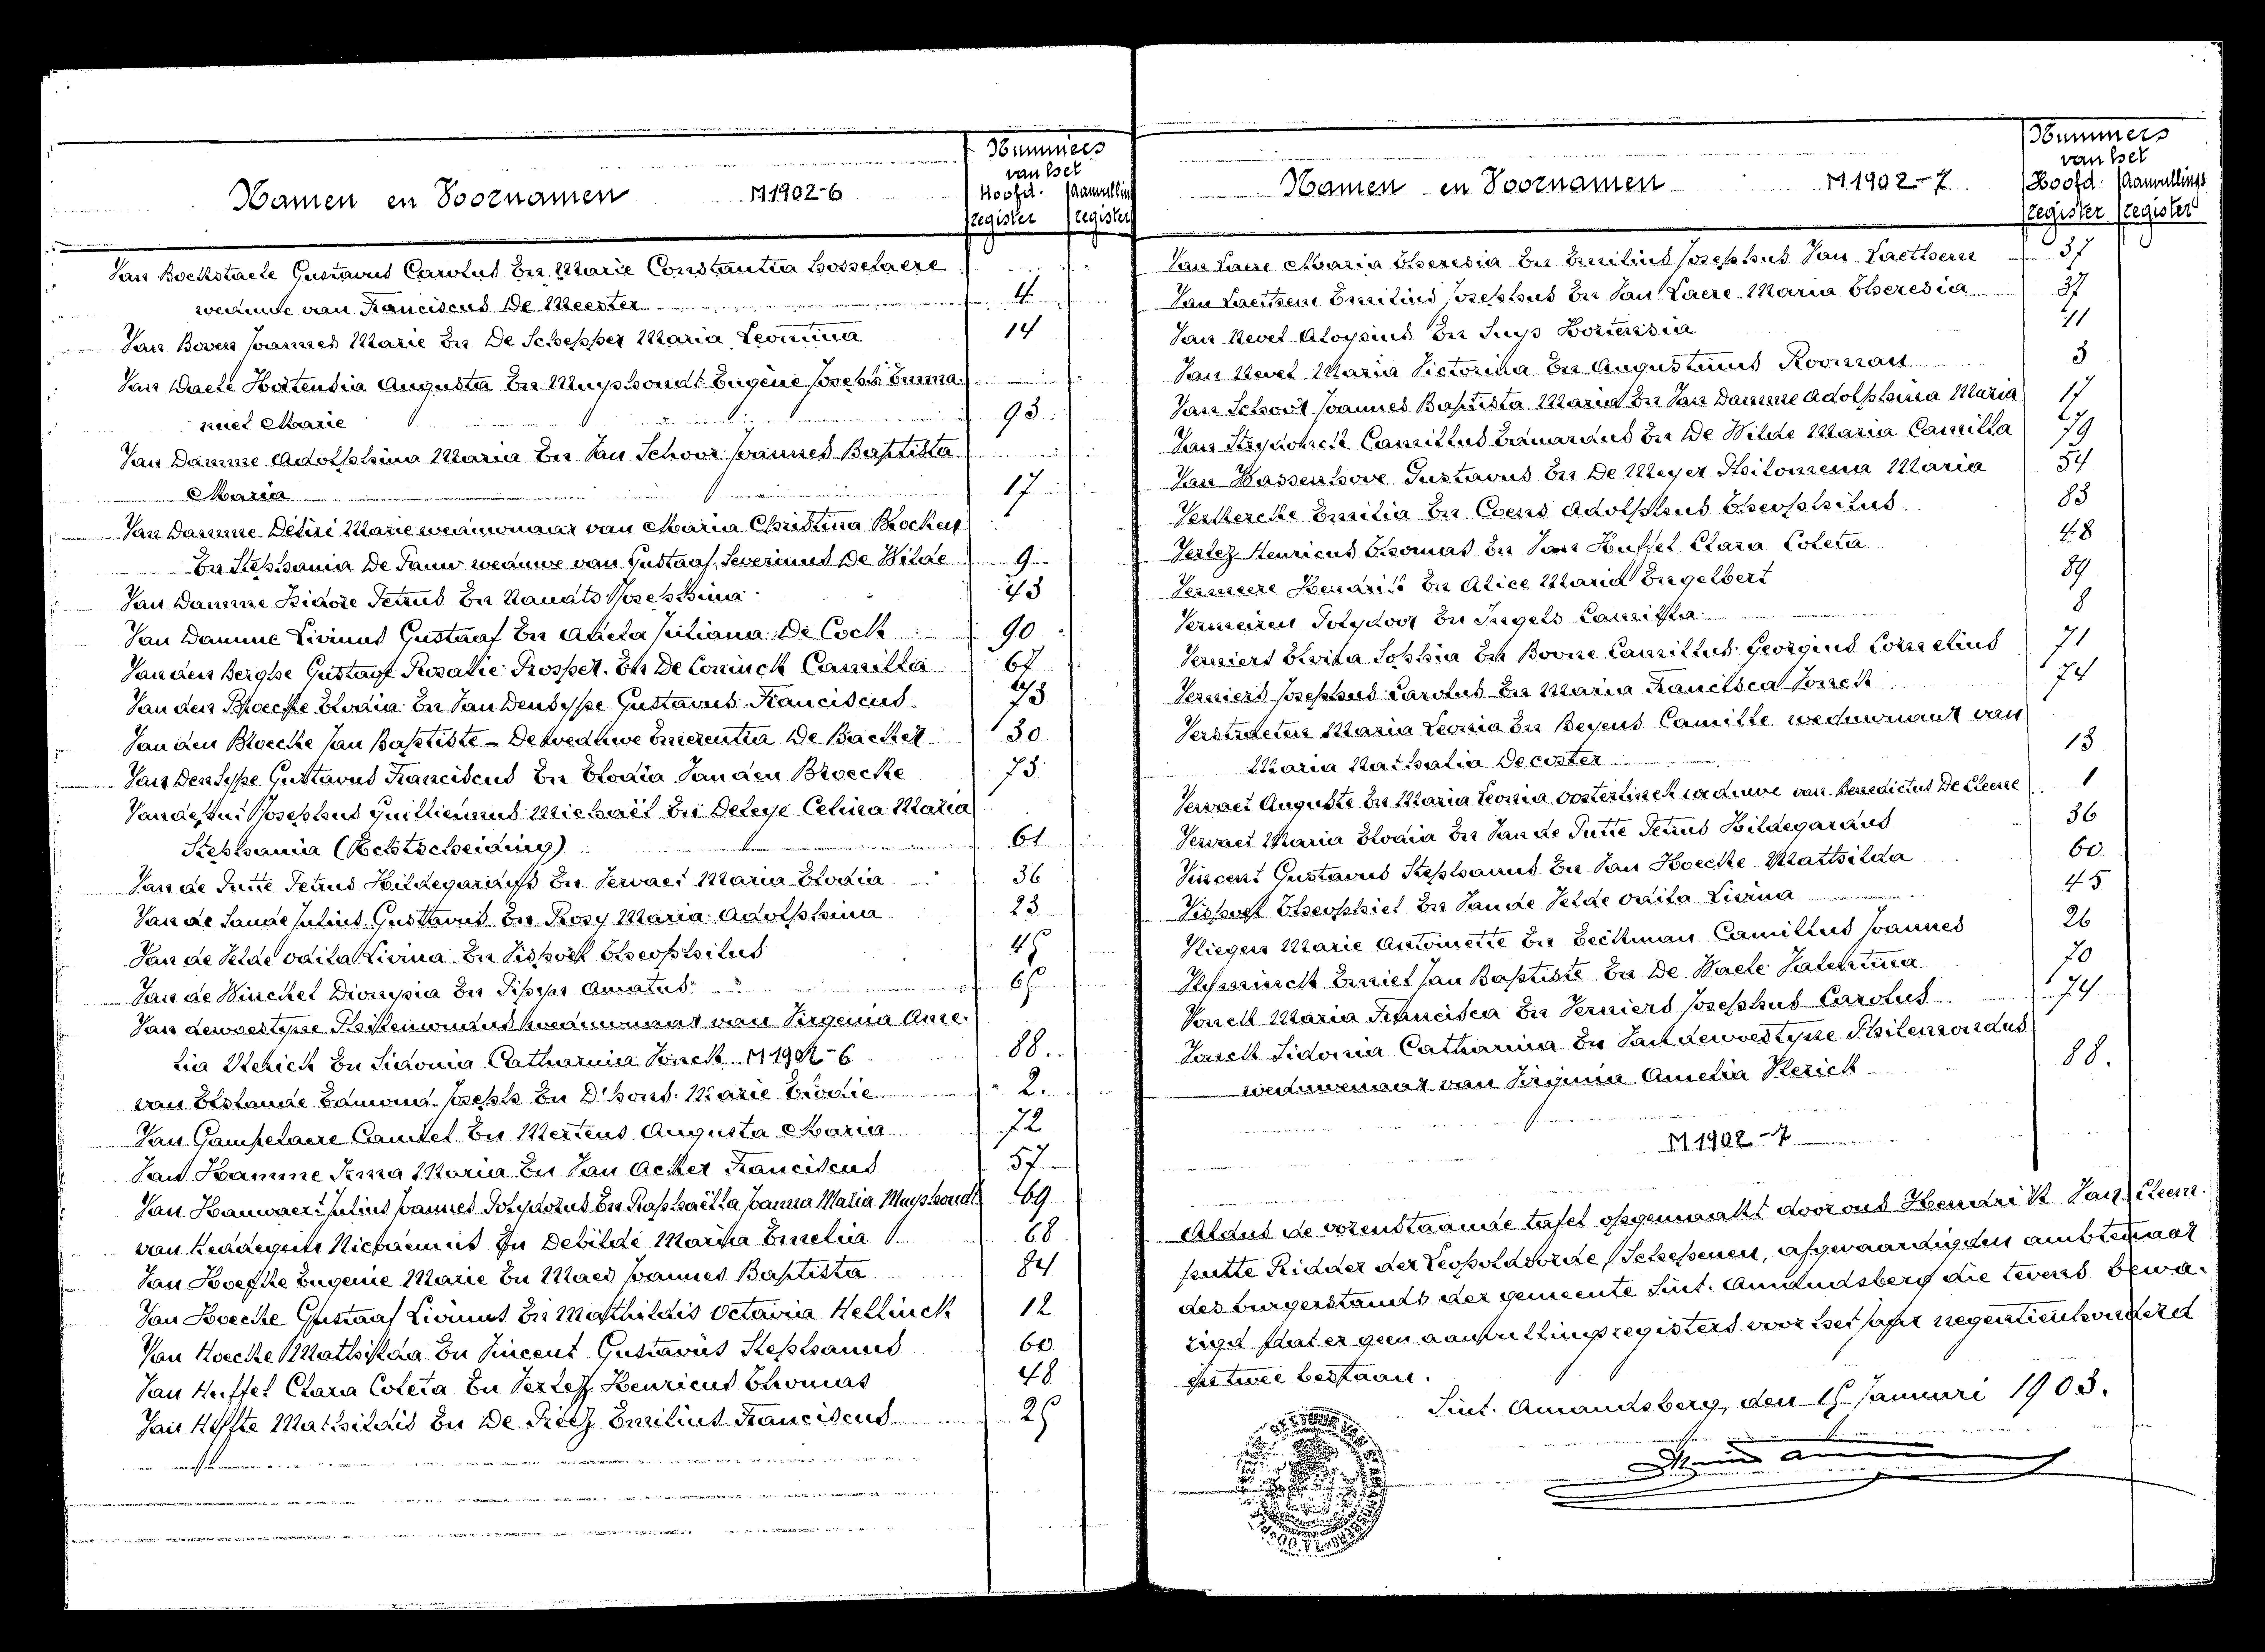 Namen en Voornamen M 1902-6
Nummers
van het
Hoofd. Aanvulling
register register
Van Bockstaele Gustavus Carolus En Marie Constantia Hosselaere
weduwe van Franciscus De Meester 4
Van Boven Joannes Marie En De Schepper Maria Leonina 14
Van Daele Hortensia Augusta En Muyshondt Eugène Joseph Emma-
nuel Marie 93
Van Damme Adolphina Maria En Van Schoor Joannes Baptista
Maria 17
Van Damme Désiré Marie weduwnaar van Maria Christina Brocken
En Stephania De Pauw weduwe van Gustaaf Severinus De Wilde 9
Van Damme Isidore Petrus En Josephina 43
Van Damme Livinus Gustaaf En Juliana De Cock 90
Van den Berghe Gustaaf Rosalie Prosper En De Coninck Camilla 67
Van den Broecke Elodia En Van Densype Gustavus Franciscus 73
Van den Broecke Jan Baptiste - De weduwe Emerentia De Backer 30
Van Densype Gustavus Franciscus En Elodia Van den Broecke 73
Josephus Guilliemus Michaël En Deleye Celina Maria
Stephania (Echtscheiding) 61
Van de Putte Petrus Hildegardus En Servaet Maria Elodia 36
Van de Sande Julius Gustavus En Rosy Maria Adolphina 23
Van de Velde Odila Livina En Theophilus 45
Van de Winckel Dionysia En Amatus 65
Van dewoestyne Philemondus weduwnaar van Virginia Ame-
lia Sterick En Sidonia Catharina Vonck M 1902-6 88.
van Edmond Joseph En D'hont Marie Elodie 2.
Van Gampelaere Camiel En Mertens Augusta Maria 72
Van Hamme Irma Maria En Van Acker Franciscus 57
Van Hauwaert Julius Joannes Polydorus En Raphaëlla Joanna Maria Muyshondt 69
van En Debilde Maria Emelia 68
Van Hoecke Eugenie Marie En Maes Joannes Baptista 84
Van Hoecke Gustaaf Livinus En Mathildis Octavia Hellinck 12
Van Hoecke Mathilda En Vincent Gustavus Stephanus 60
Van Huffel Clara Coleta En Verlez Henricus Thomas 48
Van Mathildis En De Emilius Franciscus 25
Namen en Voornamen M 1902-7
Nummers
van het
Hoofd. Aanvullings
register register
Van Laere Maria Theresia En Emilius Josephus Van Laethem 37
Van Laethem Emilius Josephus En Van Laere Maria Theresia 37
Van Nevel Aloysius En Suys Hortensia 41
Van Nevel Maria Victorina En Augustinus Rooman 3
Van Schoor Joannes Baptista Maria En Van Damme Adolphina Maria 17
Van Strydonck Camillus Eduardus En De Wilde Maria Camilla 79
Van Wassenhove Gustavus En De Meyer Philomena Maria 54
Verkercke Emilia En Coens Adolphus Theophilus 83
Verlez Henricus Thomas En Van Huffel Clara Coleta 48
Vermeere Hendrik En Alice Maria Engelbert 89
Vermeiren Polydoor En Ingels Camilla 8
Verniers Elvira Sophia En Boone Camillus Georgius Cornelius 71
Verniers Josephus Carolus En Maria Francisca Vonck 74
Verstraeten Maria Leonia En Beyens Camille weduwnaar van
Maria Nathalia Decoster 13
Vervaet Auguste En Maria Leonia Oosterlinck weduwe van Benedictus De Cleene 1
Vervaet Maria Elodia En Van de Putte Petrus Hildegardus 36
Vincent Gustavus Stephanus En Van Hoecke Mathilda 60
Theophiel En Van de Velde Odila Livina 45
Vliegen Marie Antoinette En Beckman Camillus Joannes 26
Emiel Jan Baptiste En De Waele Valentina 70
Vonck Maria Francisca En Verniers Josephus Carolus 74
Vonck Sidonia Catharina En Vandewoestyne Philemondus
weduwenaar van Virginia Amelia Sterick 88.
M 1902-7
Aldus de vorenstaande tafel opgemaakt door ons Hendrik Van Cleem-
putte Ridder der Leopoldsorde, Schepenen, afgevaardigden ambtenaar
des burgerstands der gemeente Sint-Amandsberg die tevens bewa-
rigd dat er geen aanvullingsregisters voor het jaar negentienhonderd
en twee bestaan.
Sint-Amandsberg, den 15 Januari 1903.